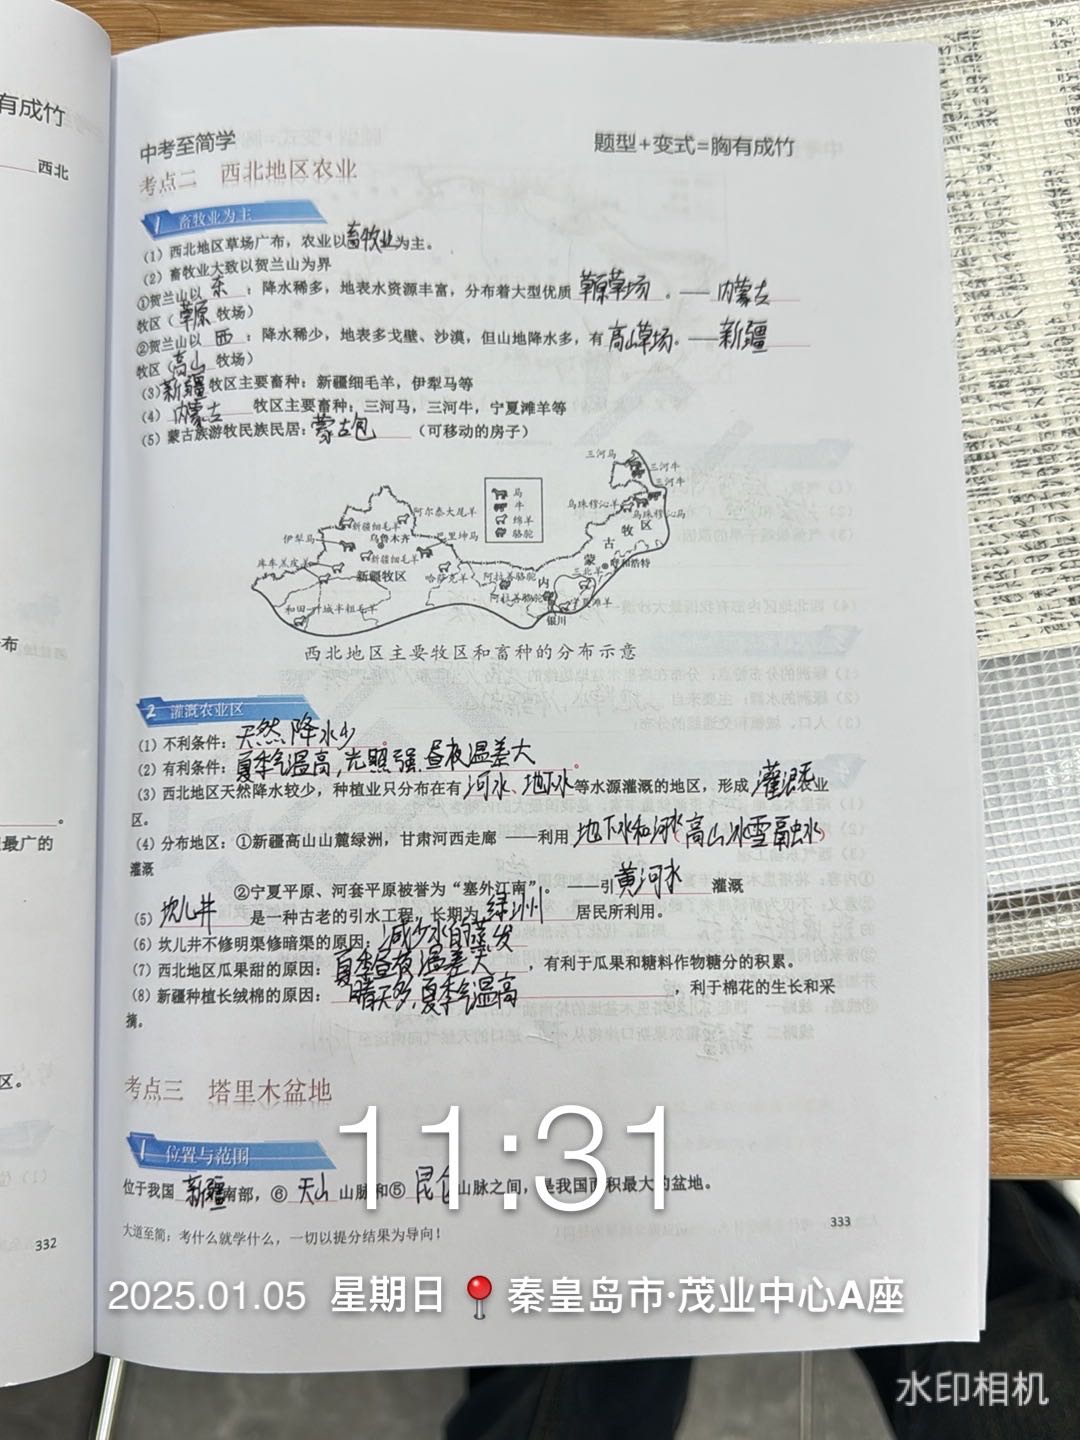 有成竹
西北
最广的
区。
332
中考至简学
题型+变式=胸有成竹
考点二 西北地区农业
1 畜牧业为主
(1)西北地区草场广布,农业以畜牧业为主。
(2)畜牧业大致以贺兰山为界
①贺兰山以 东 :降水稀多,地表水资源丰富,分布着大型优质 草原草场 。——内蒙古
牧区(草原 牧场)
②贺兰山以 西 :降水稀少,地表多戈壁、沙漠,但山地降水多,有高山草场。——新疆
牧区(高山 牧场)
(3)新疆牧区主要畜种:新疆细毛羊,伊犁马等
(4)内蒙古 牧区主要畜种:三河马,三河牛,宁夏滩羊等
(5)蒙古族游牧民族民居:蒙古包 (可移动的房子)
三河马
三河牛
三河牛
马
牛
绵羊
骆驼
乌珠穆沁羊
乌珠穆沁马
阿尔泰大尾羊
新疆细毛羊
伊犁马
乌鲁木齐
巴里坤马
新疆细毛羊
库车羔皮羊
新疆牧区
哈萨克羊
阿拉善骆驼
阿拉善骆驼
内
蒙
古
牧
区
呼和浩特
三北羊
宁夏滩羊
银川
和田羊
半粗毛羊
西北地区主要牧区和畜种的分布示意
2 灌溉农业区
(1)不利条件:天然降水少。
(2)有利条件:夏季气温高,光照强,昼夜温差大。
(3)西北地区天然降水较少,种植业只分布在有河水、地下水等水源灌溉的地区,形成 灌溉农业
区。
(4)分布地区:①新疆高山山麓绿洲,甘肃河西走廊 ——利用 地下水和河水(高山冰雪融水)
灌溉
②宁夏平原、河套平原被誉为“塞外江南”。 ——引黄河水 灌溉
(5)坎儿井 是一种古老的引水工程,长期为 绿洲 居民所利用。
(6)坎儿井不修明渠修暗渠的原因:减少水的蒸发
(7)西北地区瓜果甜的原因:夏季昼夜温差大 ,有利于瓜果和糖料作物糖分的积累。
(8)新疆种植长绒棉的原因: 晴天多,夏季气温高 ,利于棉花的生长和采
摘。
考点三 塔里木盆地
1 位置与范围
位于我国 新疆南部,⑥ 天山 山脉和⑤ 昆仑山脉之间,是我国面积最大的盆地。
大道至简:考什么就学什么,一切以提分结果为导向!
333
11:31
2025.01.05 星期日 秦皇岛市·茂业中心A座
水印相机